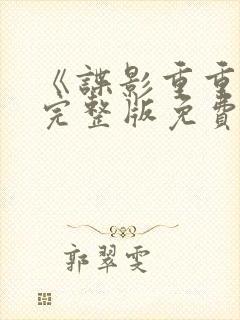 《諜影重重
完整版免費
郭翠雯